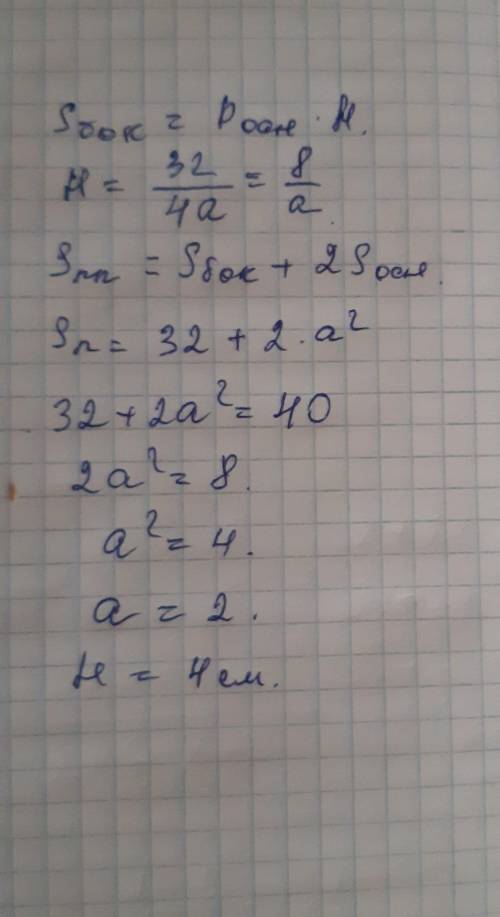 Sбок = Pосн · H.
H = 32/4a = 8/a.
Sпп = Sбок + 2Sосн.
Sп = 32 + 2·a²
32 + 2a² = 40
2a² = 8.
a² = 4.
a = 2.
H = 4 см.